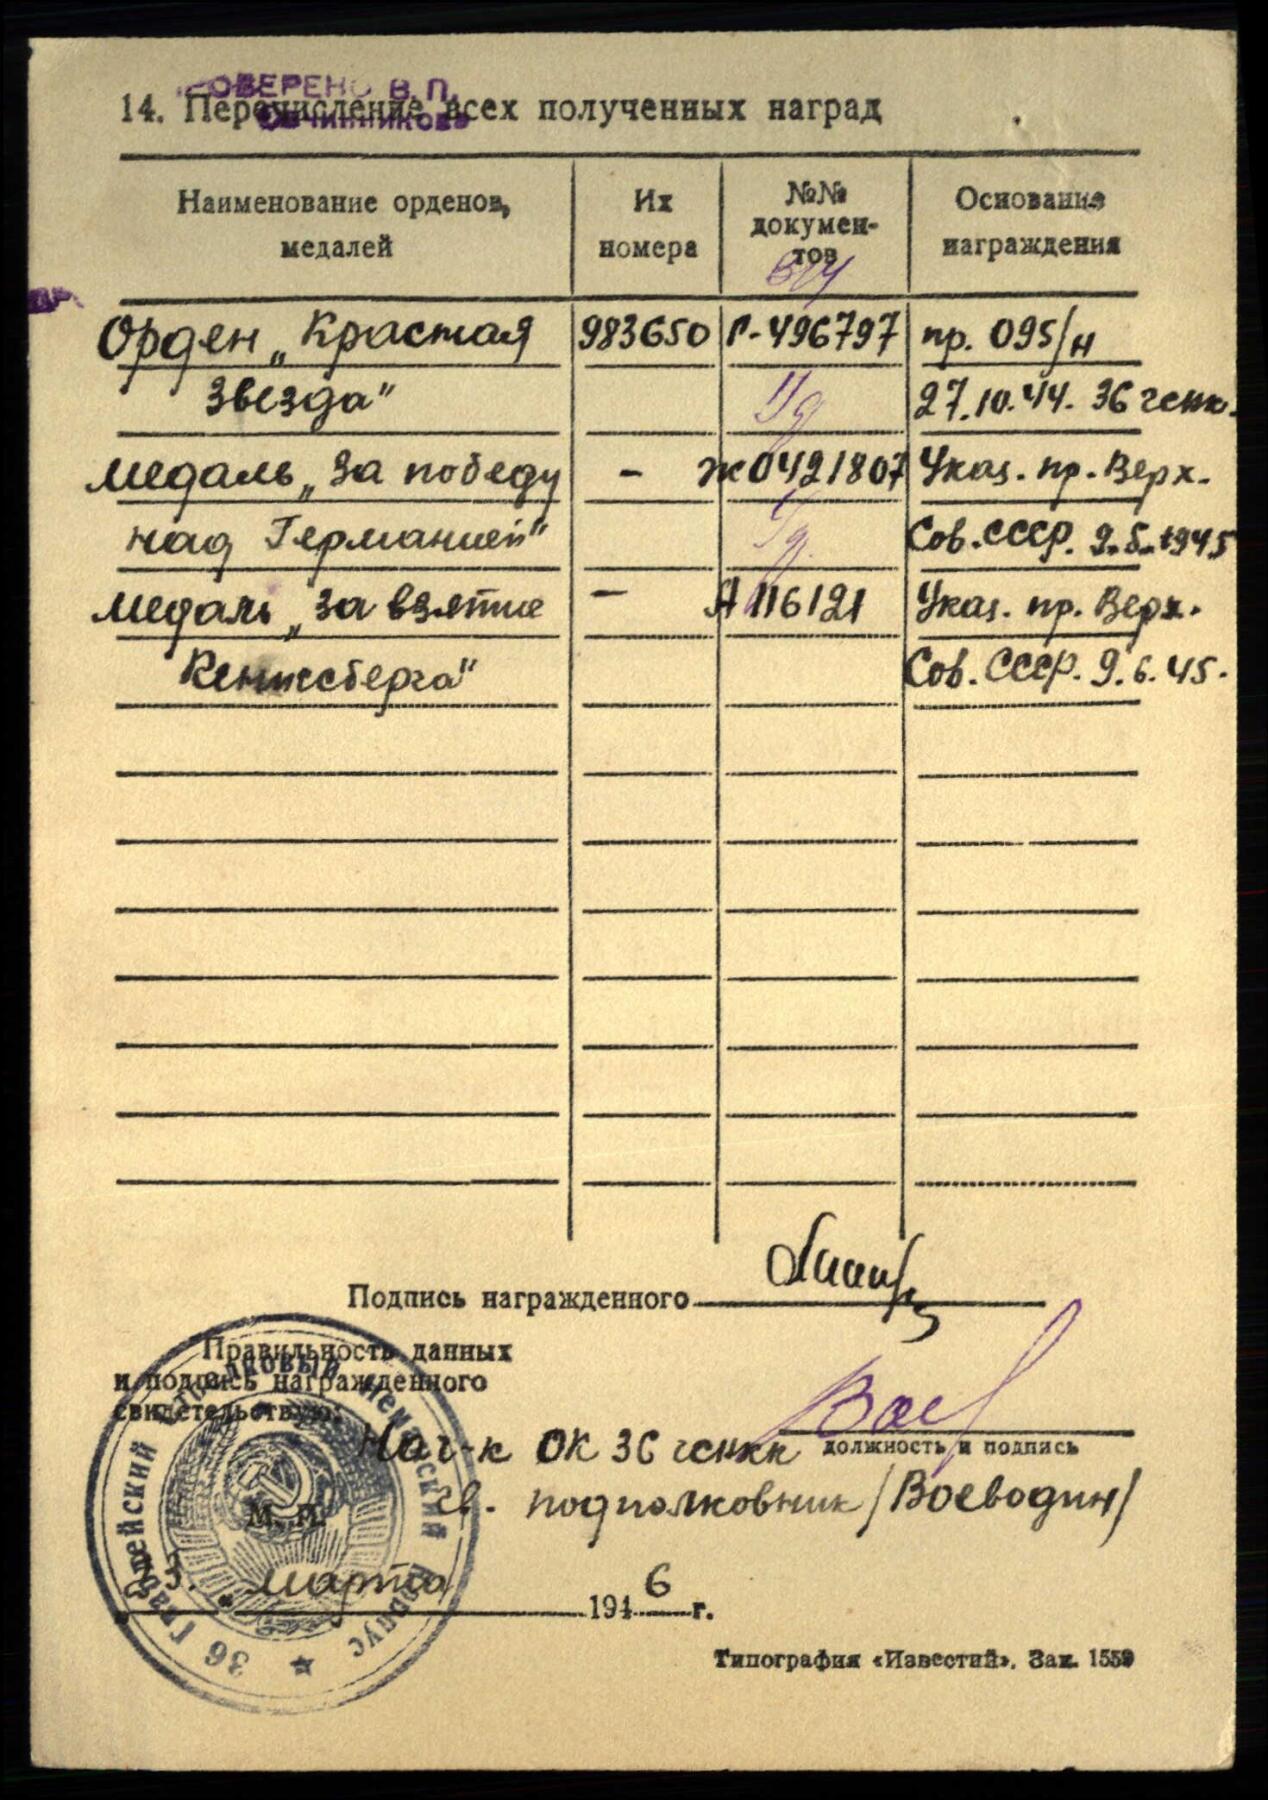 ПРОВЕРЕНО В. П.
ОВЧИННИКОВ
14. Перечисление всех полученных наград
Наименование орденов, медалей
Их номера
№№ документов
Основание награждения
Орден „Красная 983650 Г-496797 пр. 095/н
Звезда" 27.10.44. 36 гснк.
медаль „За победу - Ж0421807 Указ. пр. Верх.
над Германией" Сов. СССР. 9.5.1945
медаль „За взятие - А 116121 Указ. пр. Верх.
Кенигсберга" Сов. СССР. 9.6.45.
Подпись награжденного
Правильность данных
и подпись награжденного
свидетельствую:
Нач-к ОК 36 гснкк должность и подпись
гв. подполковник /Воеводин/
М. П.
марта 1946 г.
36 Гвардейский Стрелковый Неманский Корпус
Типография «Известий». Зак. 1559